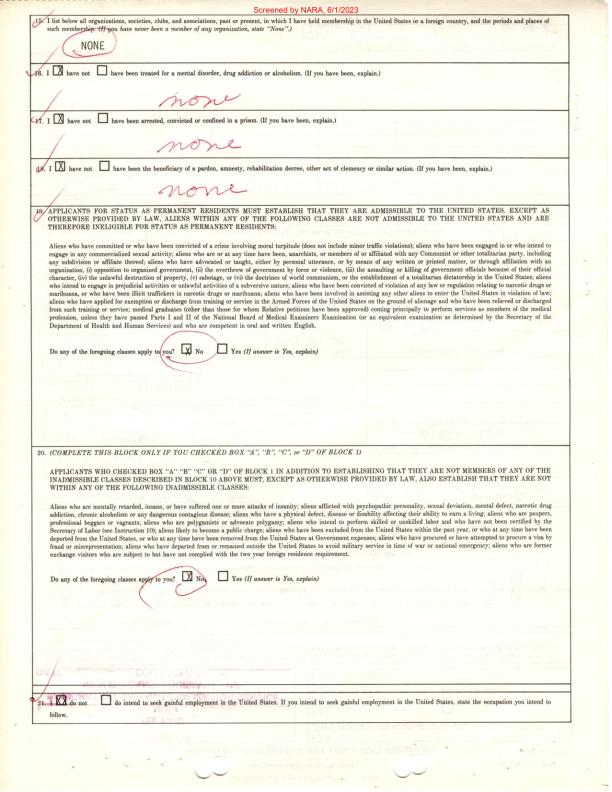 Screened by NARA, 6/1/2023
15. I list below all organizations, societies, clubs, and associations, past or present, in which I have held membership in the United States or a foreign country, and the periods and places of
such membership. (If you have never been a member of any organization, state "None".)
NONE
16. I [X] have not [ ] have been treated for a mental disorder, drug addiction or alcoholism. (If you have been, explain.)
none
17. I [X] have not [ ] have been arrested, convicted or confined in a prison. (If you have been, explain.)
none
18. I [X] have not [ ] have been the beneficiary of a pardon, amnesty, rehabilitation decree, other act of clemency or similar action. (If you have been, explain.)
none
19. APPLICANTS FOR STATUS AS PERMANENT RESIDENTS MUST ESTABLISH THAT THEY ARE ADMISSIBLE TO THE UNITED STATES. EXCEPT AS
OTHERWISE PROVIDED BY LAW, ALIENS WITHIN ANY OF THE FOLLOWING CLASSES ARE NOT ADMISSIBLE TO THE UNITED STATES AND ARE
THEREFORE INELIGIBLE FOR STATUS AS PERMANENT RESIDENTS:
Aliens who have committed or who have been convicted of a crime involving moral turpitude (does not include minor traffic violations); aliens who have been engaged in or who intend to
engage in any commercialized sexual activity; aliens who are or at any time have been, anarchists, or members of or affiliated with any Communist or other totalitarian party, including
any subdivision or affiliate thereof; aliens who have advocated or taught, either by personal utterance, or by means of any written or printed matter, or through affiliation with an
organization, (i) opposition to organized government, (ii) the overthrow of government by force or violence, (iii) the assaulting or killing of government officials because of their official
character, (iv) the unlawful destruction of property, (v) sabotage, or (vi) the doctrines of world communism, or the establishment of a totalitarian dictatorship in the United States; aliens
who intend to engage in prejudicial activities or unlawful activities of a subversive nature; aliens who have been convicted of violation of any law or regulation relating to narcotic drugs or
marihuana, or who have been illicit traffickers in narcotic drugs or marihuana; aliens who have been involved in assisting any other aliens to enter the United States in violation of law;
aliens who have applied for exemption or discharge from training or service in the Armed Forces of the United States on the ground of alienage and who have been relieved or discharged
from such training or service; medical graduates (other than those for whom Relative petitions have been approved) coming principally to perform services as members of the medical
profession, unless they have passed Parts I and II of the National Board of Medical Examiners Examination (or an equivalent examination as determined by the Secretary of the
Department of Health and Human Services) and who are competent in oral and written English.
Do any of the foregoing classes apply to you? [X] No [ ] Yes (If answer is Yes, explain)
20. (COMPLETE THIS BLOCK ONLY IF YOU CHECKED BOX "A", "B", "C", or "D" OF BLOCK 1)
APPLICANTS WHO CHECKED BOX "A" "B" "C" OR "D" OF BLOCK 1 IN ADDITION TO ESTABLISHING THAT THEY ARE NOT MEMBERS OF ANY OF THE
INADMISSIBLE CLASSES DESCRIBED IN BLOCK 19 ABOVE MUST, EXCEPT AS OTHERWISE PROVIDED BY LAW, ALSO ESTABLISH THAT THEY ARE NOT
WITHIN ANY OF THE FOLLOWING INADMISSIBLE CLASSES:
Aliens who are mentally retarded, insane, or have suffered one or more attacks of insanity; aliens afflicted with psychopathic personality, sexual deviation, mental defect, narcotic drug
addiction, chronic alcoholism or any dangerous contagious disease; aliens who have a physical defect, disease or disability affecting their ability to earn a living; aliens who are paupers,
professional beggars or vagrants; aliens who are polygamists or advocate polygamy; aliens who intend to perform skilled or unskilled labor and who have not been certified by the
Secretary of Labor (see Instruction 10); aliens likely to become a public charge; aliens who have been excluded from the United States within the past year, or who at any time have been
deported from the United States, or who at any time have been removed from the United States at Government expenses; aliens who have procured or have attempted to procure a visa by
fraud or misrepresentation; aliens who have departed from or remained outside the United States to avoid military service in time of war or national emergency; aliens who are former
exchange visitors who are subject to but have not complied with the two year foreign residence requirement.
Do any of the foregoing classes apply to you? [X] No [ ] Yes (If answer is Yes, explain)
21. I [XX] do not [ ] do intend to seek gainful employment in the United States. If you intend to seek gainful employment in the United States, state the occupation you intend to
follow.